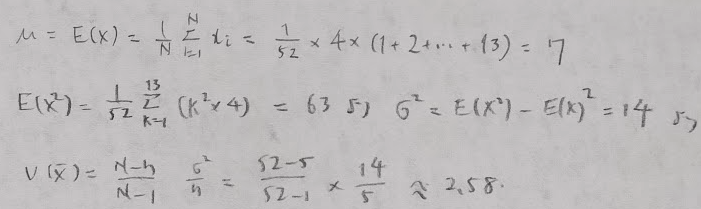 μ = E(X) = 1/N Σ_{i=1}^{N} xi = 1/52 × 4 × (1+2+…+13) = 7
E(X²) = 1/52 Σ_{k=1}^{13} (k²×4) = 63 より σ² = E(X²) − E(X)² = 14 より
V(x̄) = N−n/N−1 σ²/n = 52−5/52−1 × 14/5 ≈ 2.58.